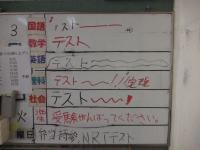 3
国語 テスト
数学 テスト
英語 テスト
理科 テスト!!
社会 テスト
火
受験がんばってください。
曜日 NRTテスト